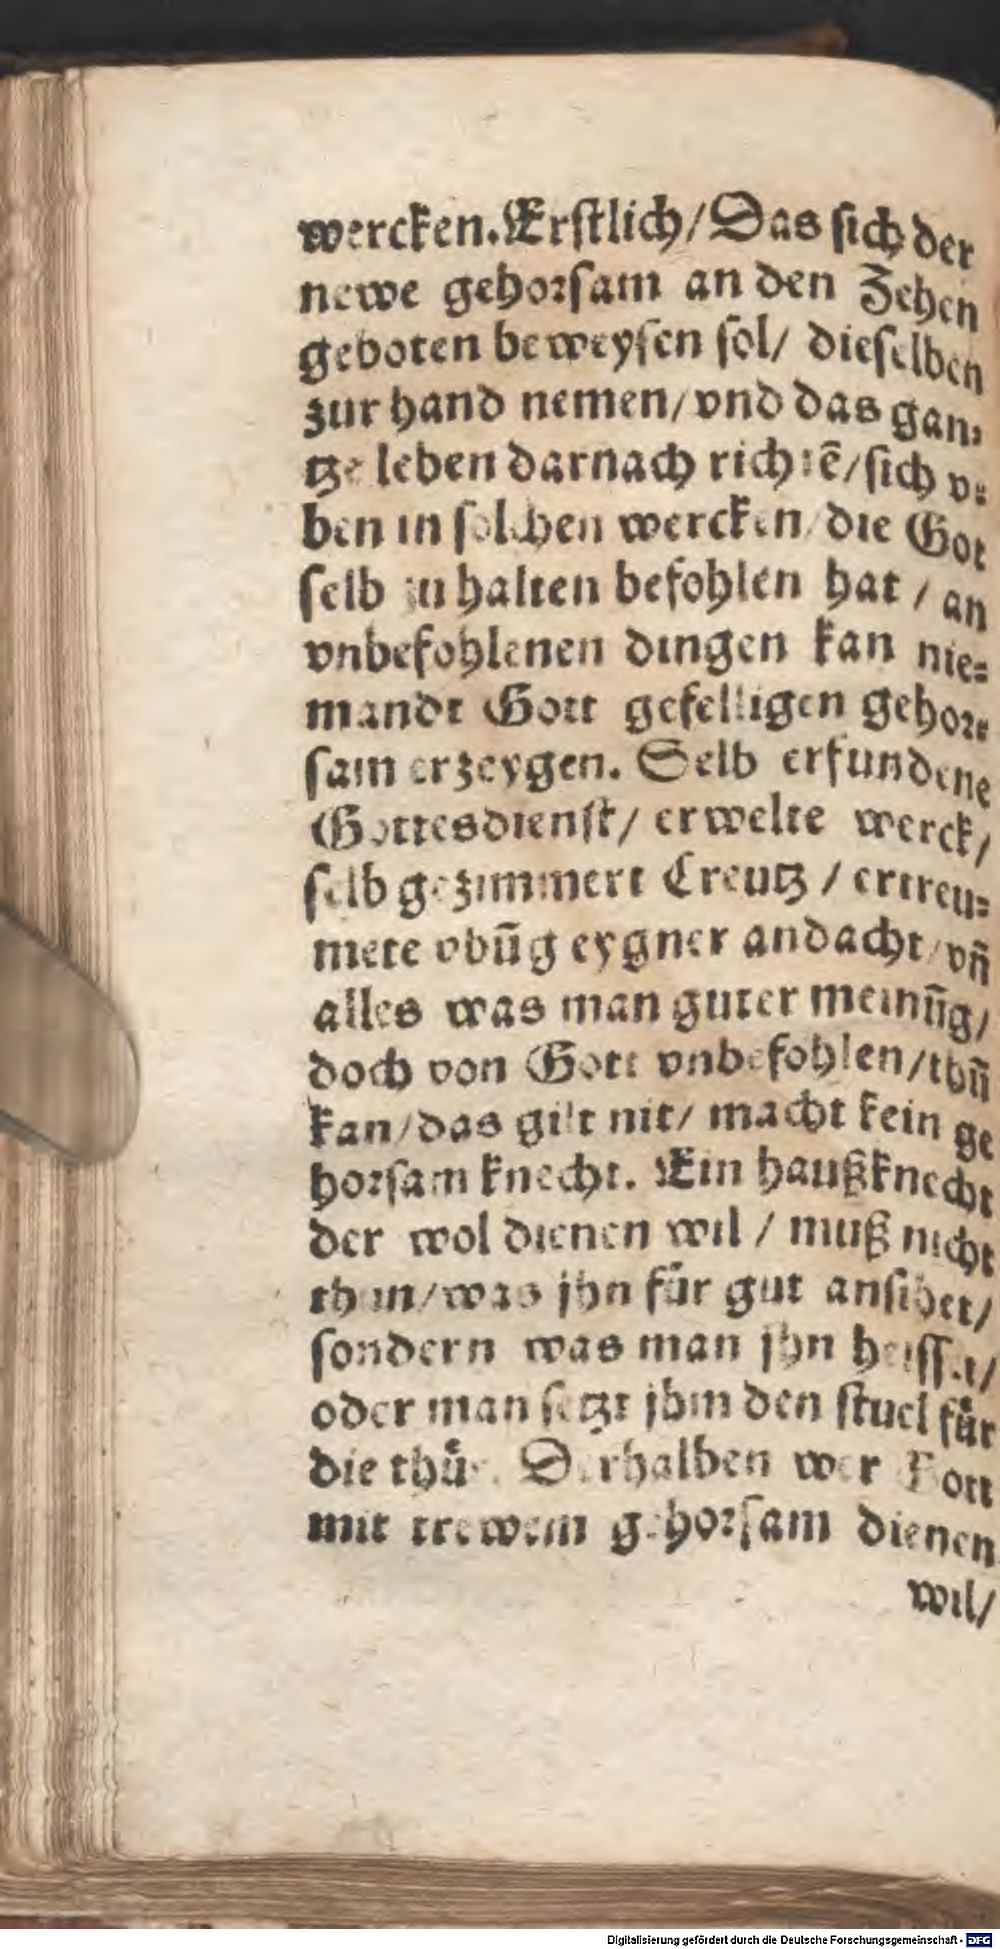 wercken. Erstlich/ Das sich der
newe gehorsam an den Zehen
geboten beweysen sol/ dieselben
zur hand nemen/ vnd das gan-
tze leben darnach richtē/ sich v-
ben in solchen wercken/ die Got
selb zu halten befohlen hat / an
vnbefohlenen dingen kan nie-
mandt Gott gefelligen gehor-
sam erzeygen. Selb erfundene
Gottesdienst/ erwelte werck/
selb gezimmert Creutz / ertreu-
mete vbūg eygner andacht/ vñ
alles was man guter meinūg/
doch von Gott vnbefohlen/ thūn
kan/ das gilt nit/ macht kein ge
horsam knecht. Ein haußknecht
der wol dienen wil / muß nicht
thun/ was jhn für gut ansihet/
sondern was man jhn heisset/
oder man setzt jhm den stuel für
die thür. Derhalben wer Gott
mit trewem gehorsam dienen
wil/
Digitalisierung gefördert durch die Deutsche Forschungsgemeinschaft - DFG